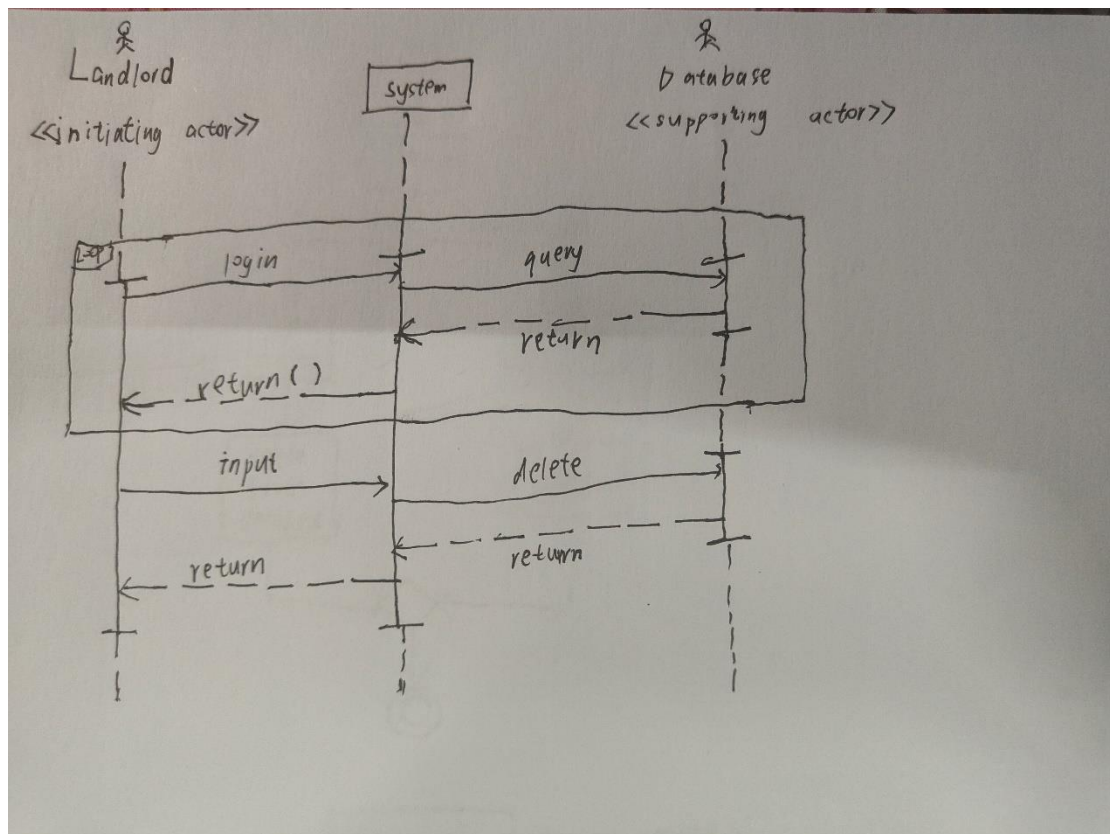 Landlord
<<initiating actor>>
system
Database
<<supporting actor>>
loop
login
query
return
return()
input
delete
return
return